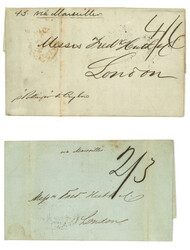 45 via Marseilles
4/6
Messrs Fredk Huth & Co
London
via Marseilles
2/3
Messrs Fredk Huth & Co
London